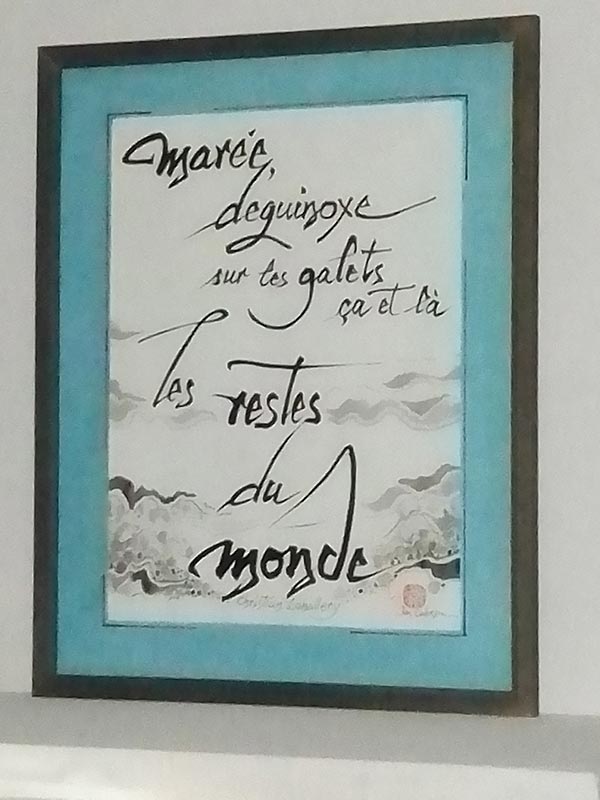 marée,
déquinoxe
sur les galets
ça et là
les restes
du
monde